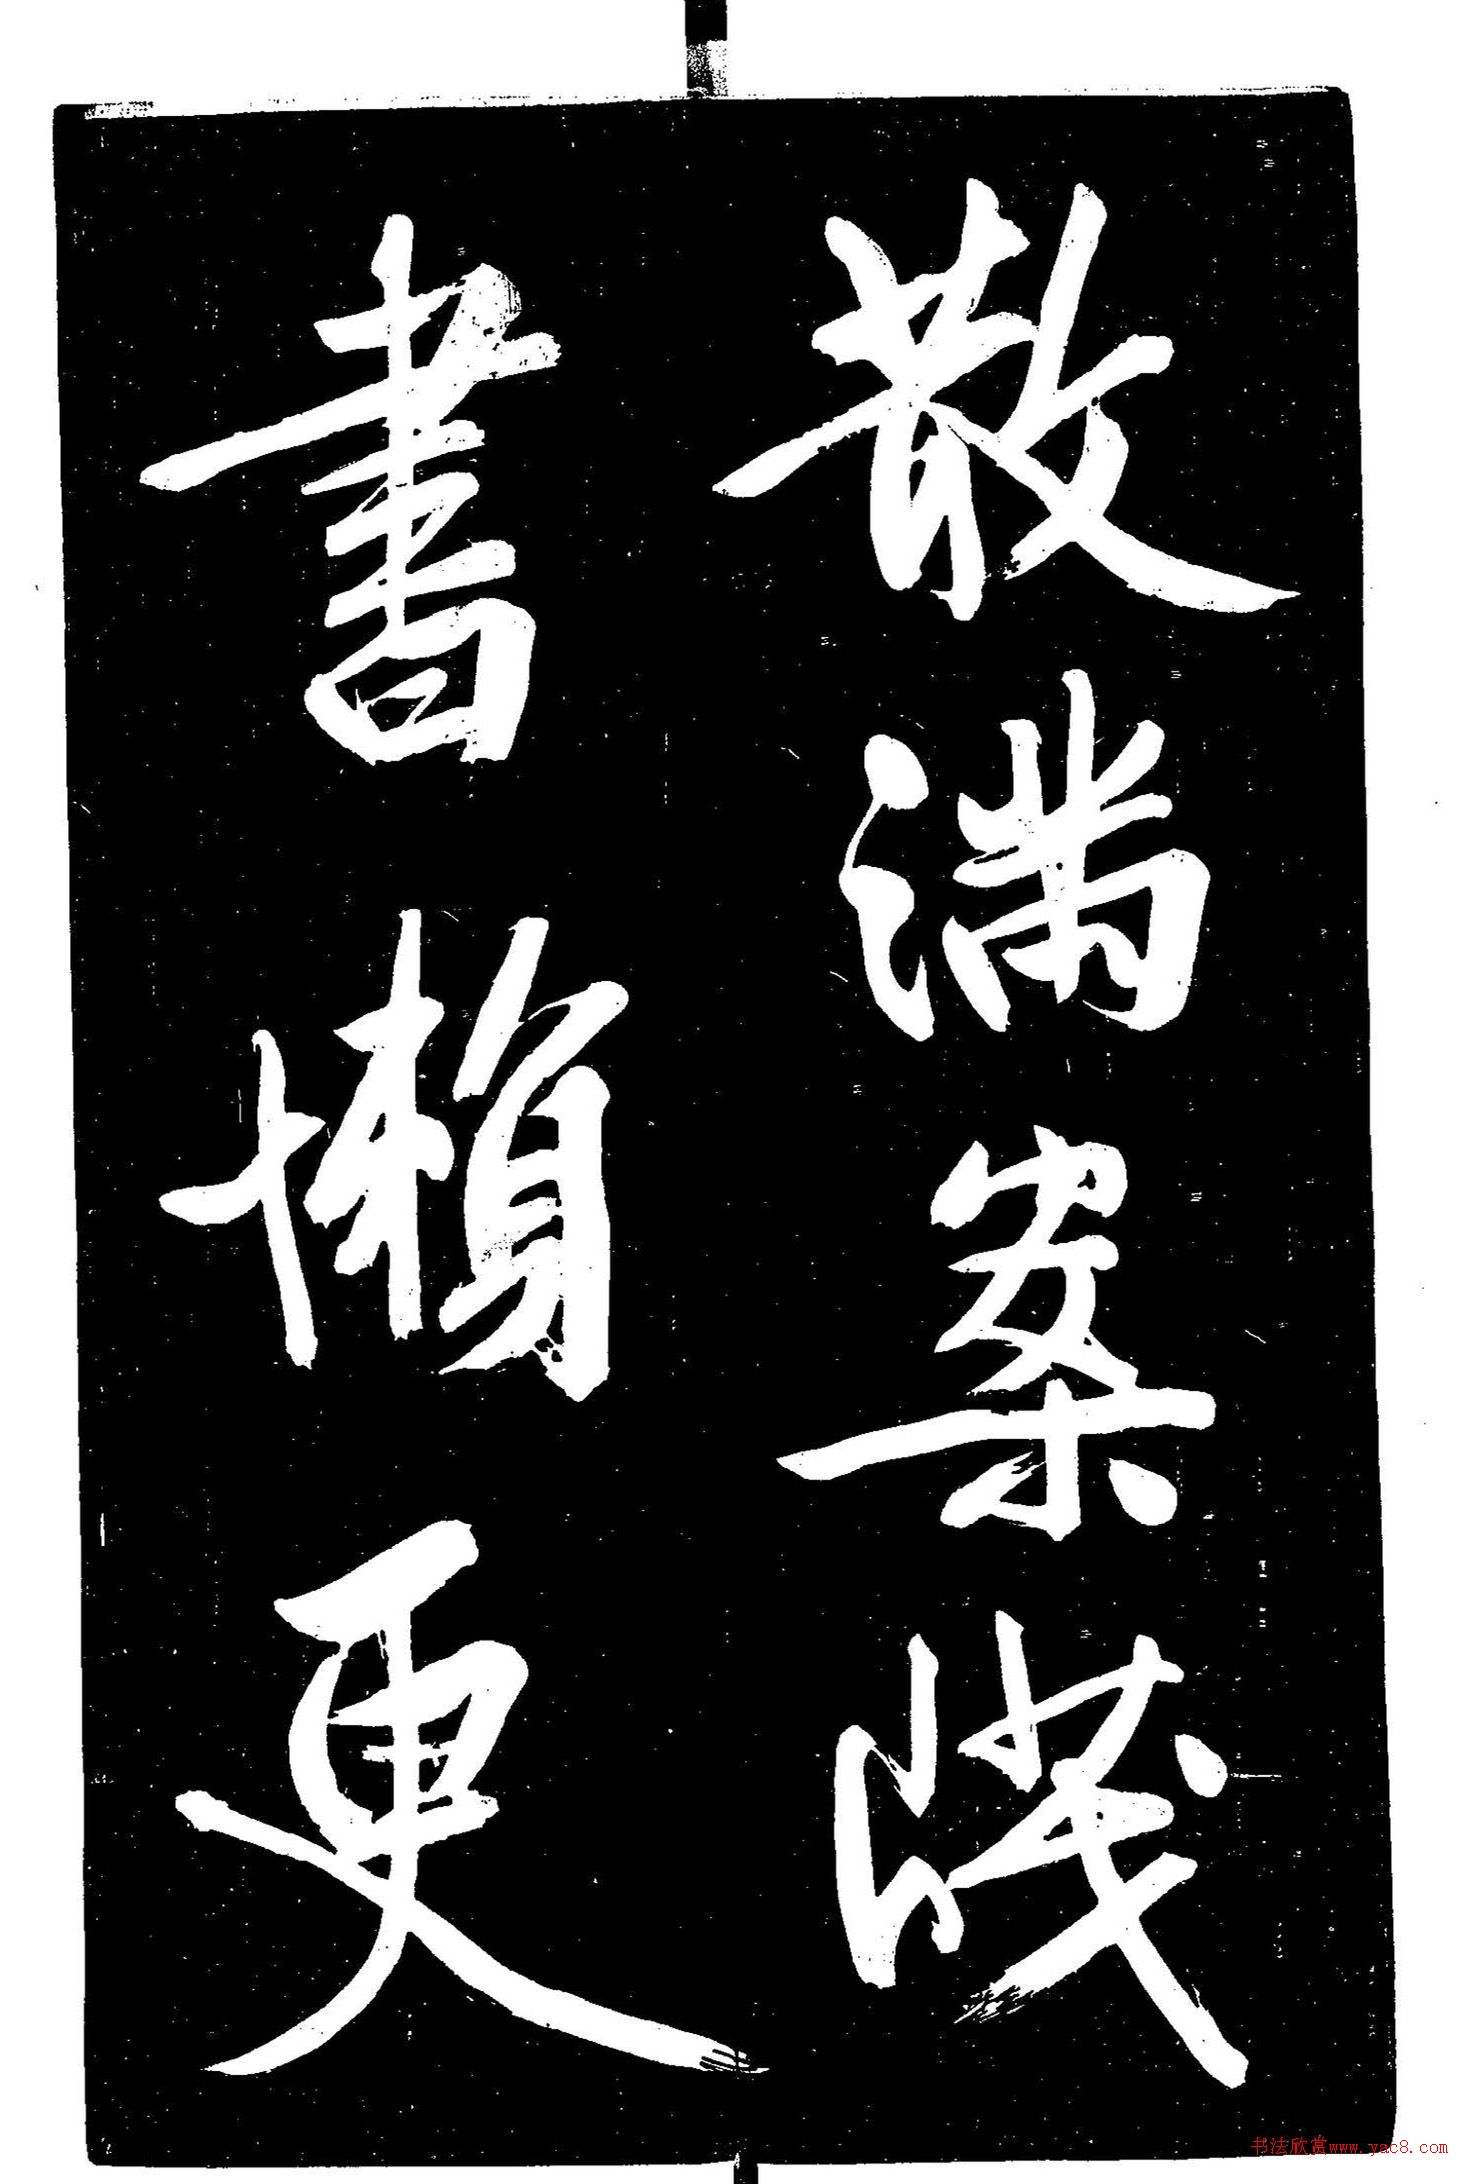 散滿案牋
書懶更
书法欣赏www.yac8.com